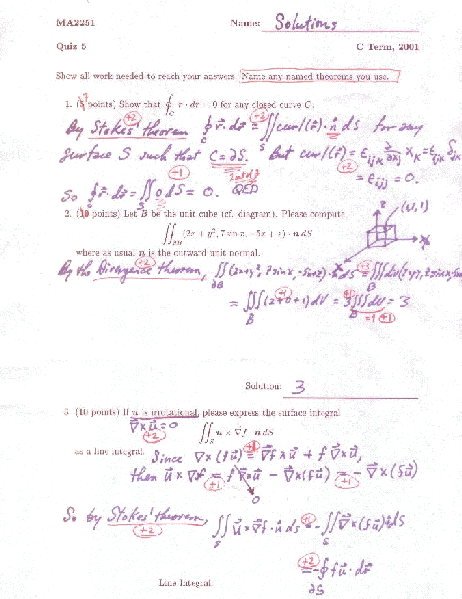 MA2251 Name: Solutions
Quiz 5 C Term, 2001
Show all work needed to reach your answers. Name any named theorems you use.
1. ( points) Show that ∮_C r · dr = 0 for any closed curve C.
+2 +2
By Stokes' theorem ∮_C r⃗·dr⃗ = ∬_S curl(r⃗)·n⃗ dS for any
surface S such that C = ∂S. But curl(r⃗) = ε_ijk ∂/∂x_j x_k = ε_ijk δ_jk
+1 +2 = ε_ijj = 0.
So ∮_C r⃗·dr⃗ = ∬_S 0 dS = 0. QED
2. (10 points) Let B be the unit cube (cf. diagram). Please compute
z (1,1,1)
∬_∂B (2x + y², 7 sin x, −5x + z) · n dS
x
where as usual n is the outward unit normal.
+2
By the Divergence theorem, ∬_∂B (2x+y², 7sinx, -5x+z)·n⃗ dS = ∭_B div(2x+y², 7sinx,
= ∭_B (2+0+1)dV = 3∭_B dV = 3
+1 +1 =1 +1
Solution: 3
3. (10 points) If u is irrotational, please express the surface integral
∇⃗×u⃗=0
+2
∬_S u × ∇f · n dS
as a line integral. Since ∇×(fu⃗) = ∇⃗f×u⃗ + f ∇⃗×u⃗,
then u⃗×∇f = f ∇⃗×u⃗ − ∇⃗×(fu⃗) = −∇⃗×(fu⃗)
+1 0 +1
So by Stokes' theorem, ∬_S u⃗×∇⃗f·n⃗ dS = −∬_S ∇⃗×(fu⃗)·n⃗ dS
+2
+2 = −∮_∂S fu⃗·dr⃗
Line Integral: